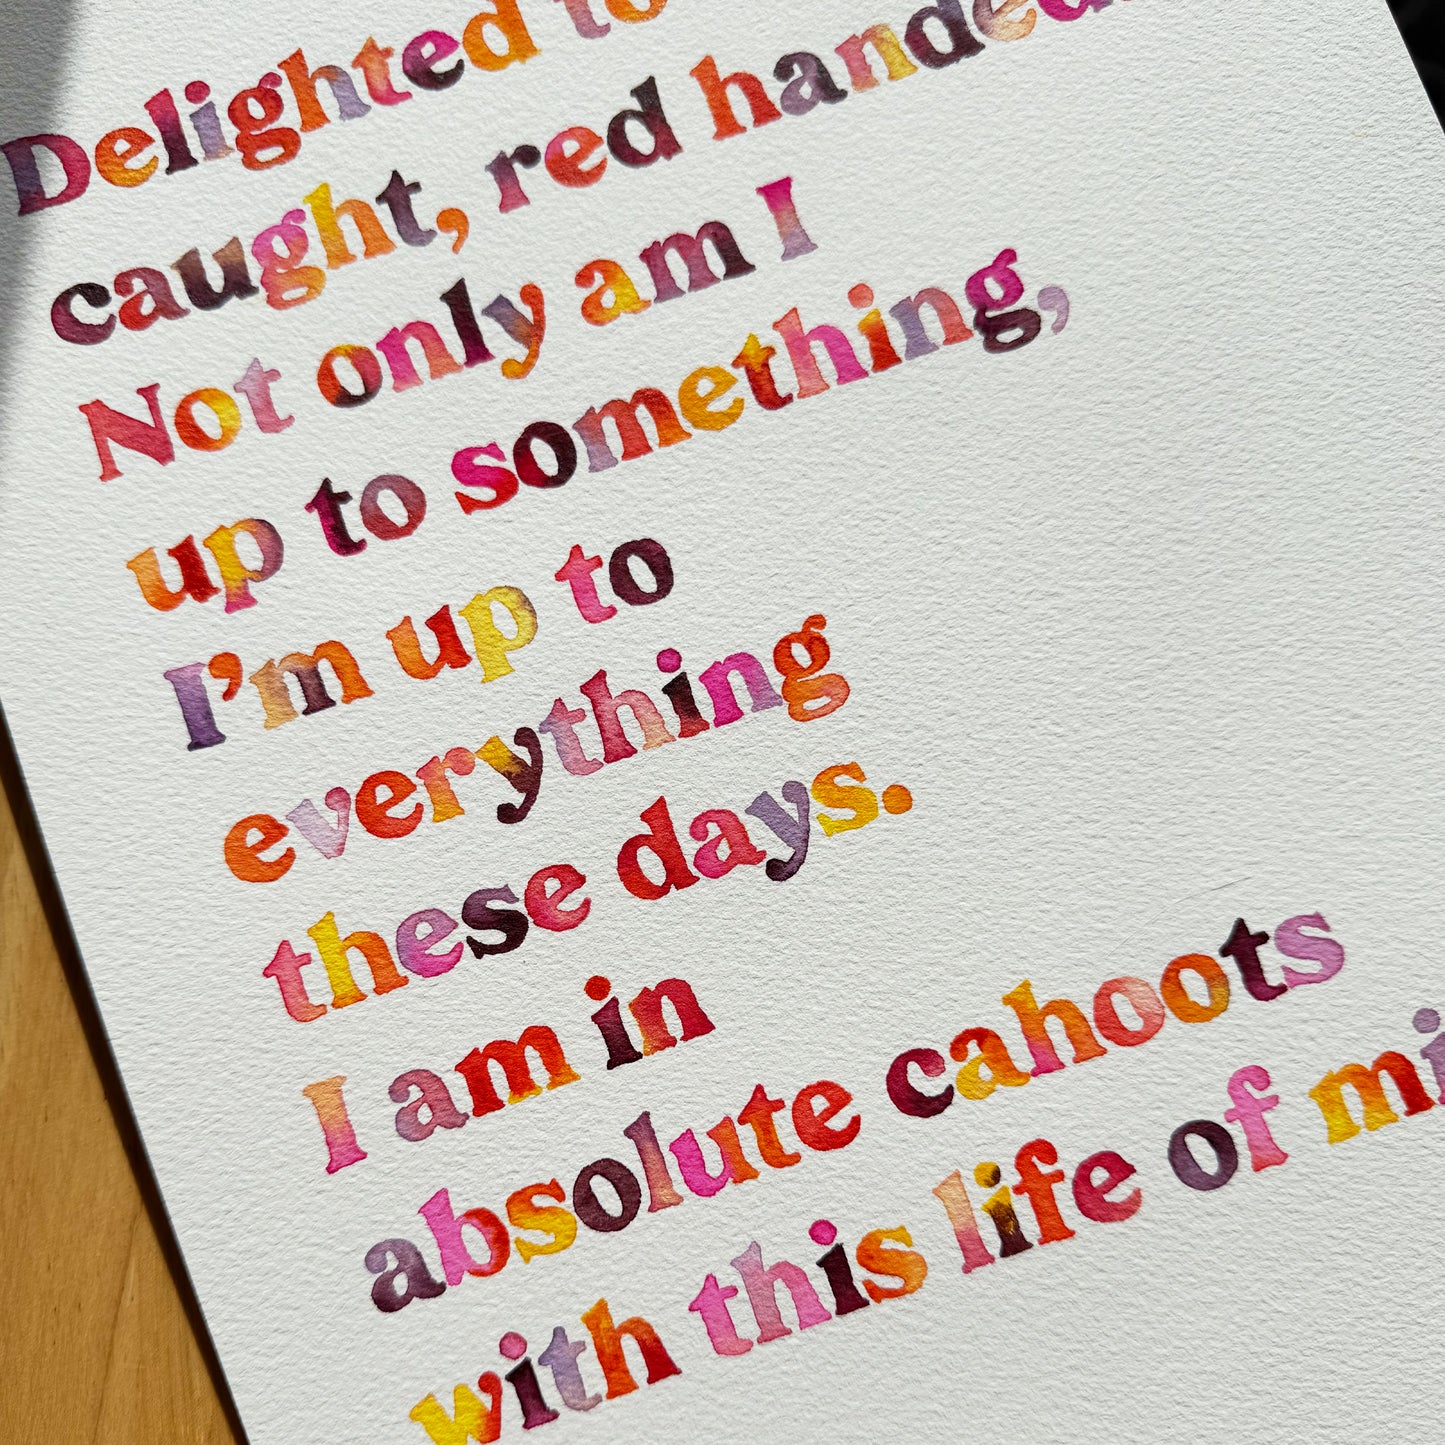 Delighted to
caught, red handed.
Not only am I
up to something,
I’m up to
everything
these days.
I am in
absolute cahoots
with this life of